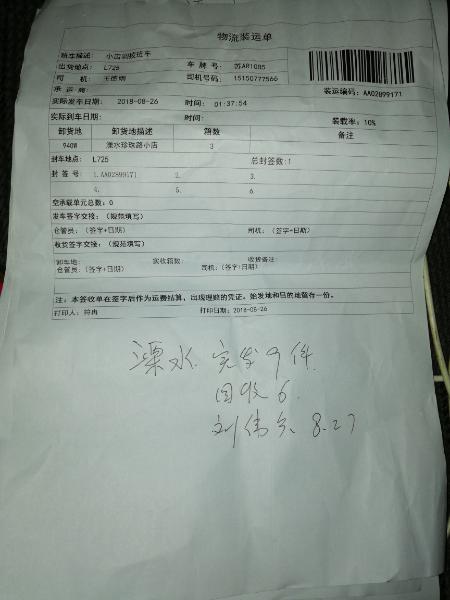 物流装运单
班车描述: 小店调拨班车
出货地点: L725 车 牌 号: 苏AR1085
司 机: 司机号码: 15150777566
承 运 商: 装运编码: AA02899171
实际发车日期: 2018-08-26 时间: 01:37:54
实际到车日期: 时间: 装载率: 10%
卸货地 卸货地描述 箱数 备注
940W 溧水珍珠路小店 3
封车地点: L725 总封签数:1
封 签 号: 1.AA02899171 2. 3.
4. 5. 6.
空承载单元总数: 0
发车签字交接: (规范填写)
仓管员: (签字+日期) 司机: (签字+日期)
收货签字交接: (规范填写)
卸车地: 实收箱数: 收货备注:
仓管员: (签字+日期) 司机:(签字+日期)
注: 本签收单在签字后作为运费结算、出现理赔的凭证。始发地和目的地留存一份。
打印人: 符冉 打印日期: 2018-08-26
溧水 实发9件
回收6.
刘伟 8.27